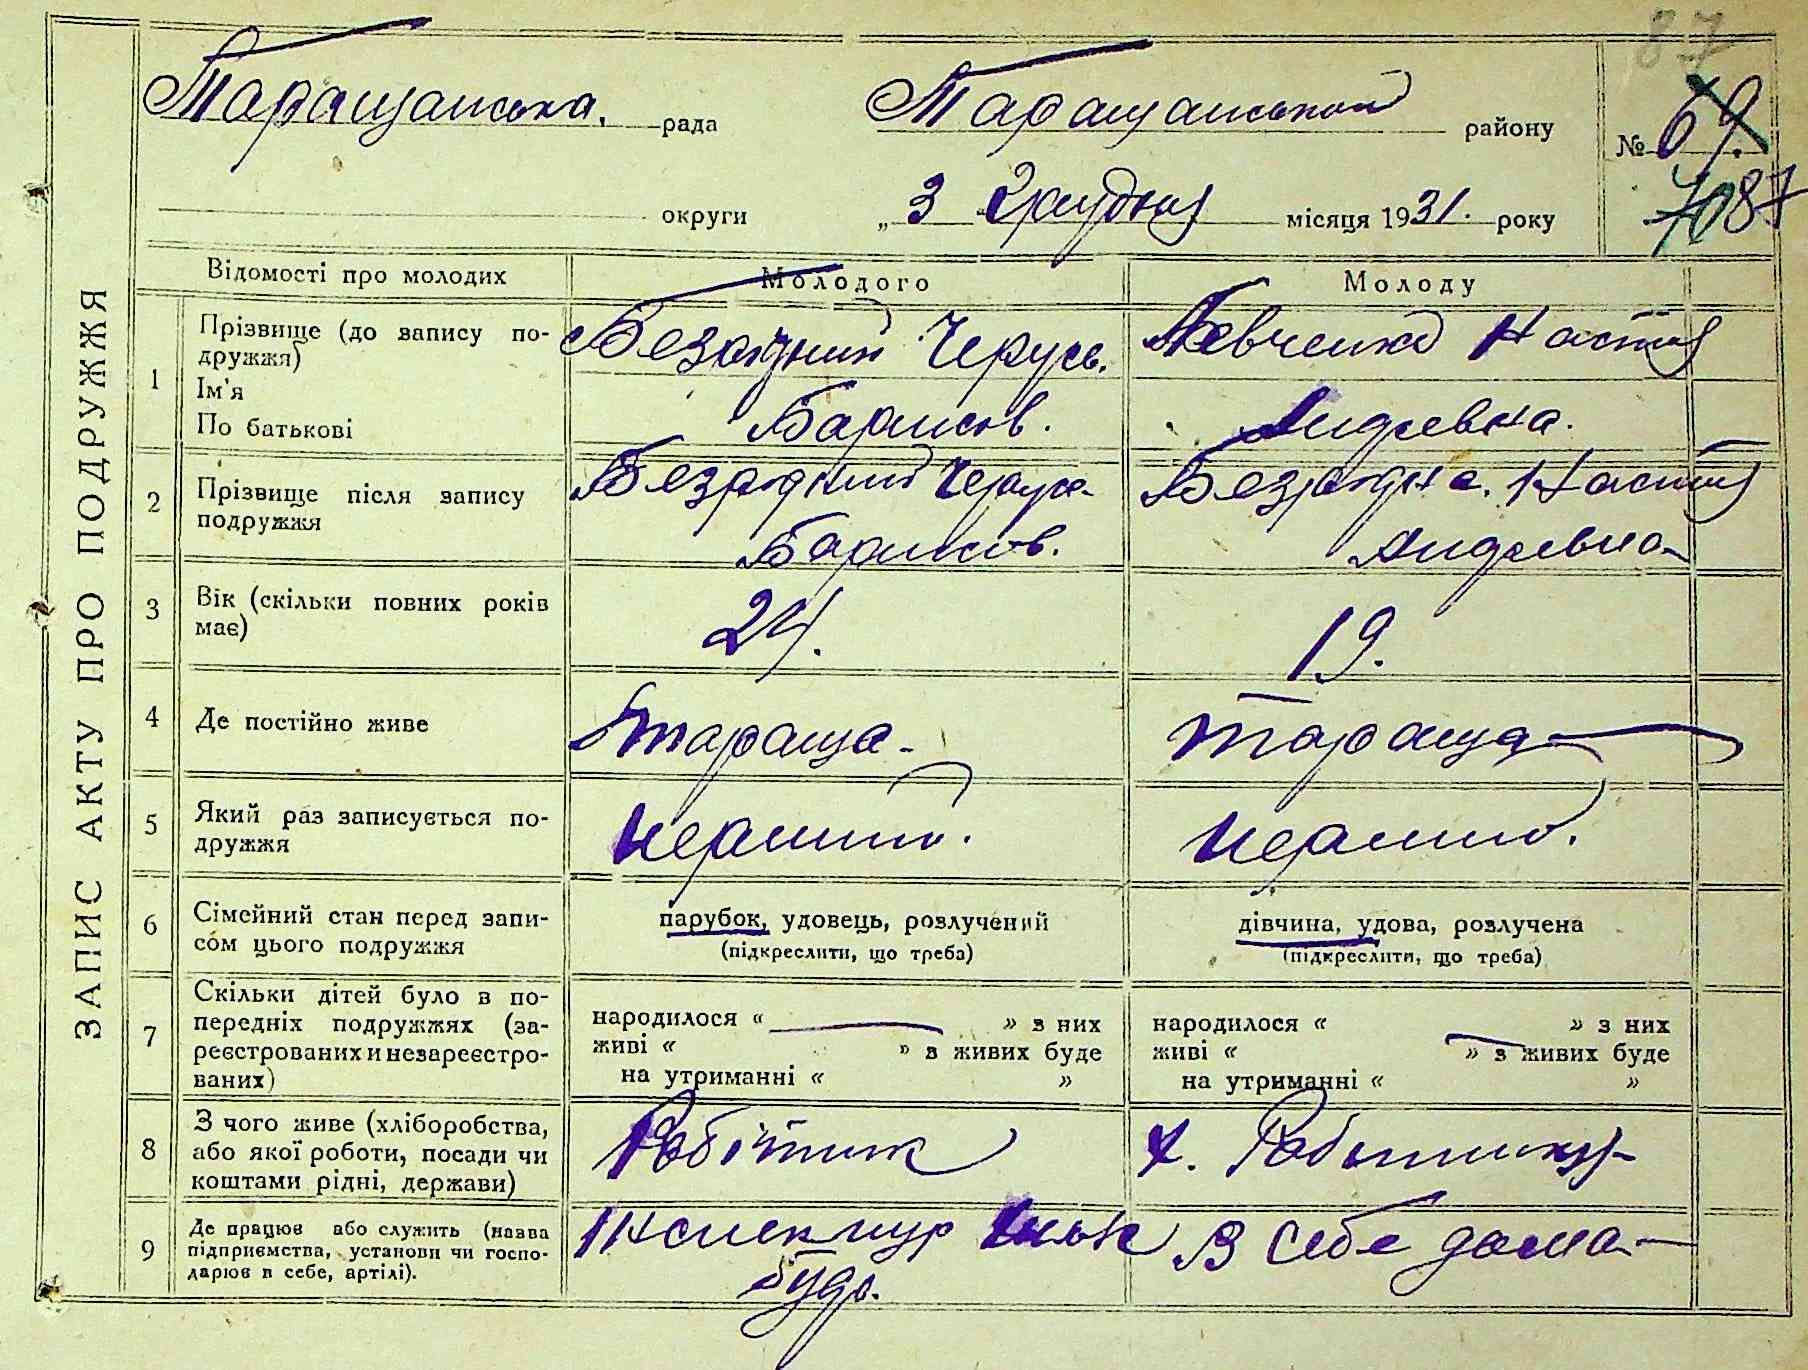 87
ЗАПИС АКТУ ПРО ПОДРУЖЖЯ
Таращанська. рада Таращанський району № 69.
округи „3 Грудня місяця 1931. року 70 87
Відомості про молодих Молодого Молоду
1 Прізвище (до запису по-
дружжя)
Ім'я
По батькові
Безродний Черусь.
Барисов.
Левченко Настя
Андреевна.
2 Прізвище після запису
подружжя
Безродний
Барисов.
Безродна. Настя
Андреевна
3 Вік (скільки повних років
має)
24.
19.
4 Де постійно живе Тараща Тараща
5 Який раз записується по-
дружжя
перший.
перший.
6 Сімейний стан перед запи-
сом цього подружжя
парубок, удовець, розлучений
(підкреслити, що треба)
дівчина, удова, розлучена
(підкреслити, що треба)
7 Скільки дітей було в по-
передніх подружжях (за-
реєстрованих и незареєстро-
ваних)
народилося « » з них
живі « » з живих буде
на утриманні « »
народилося « » з них
живі « » з живих буде
на утриманні « »
8 З чого живе (хліборобства,
або якої роботи, посади чи
коштами рідні, держави)
Робітник
9 Де працює або служить (назва
підприємства, установи чи госпо-
дарює в себе, артілі).
Інспектур
будь.
В себе дома